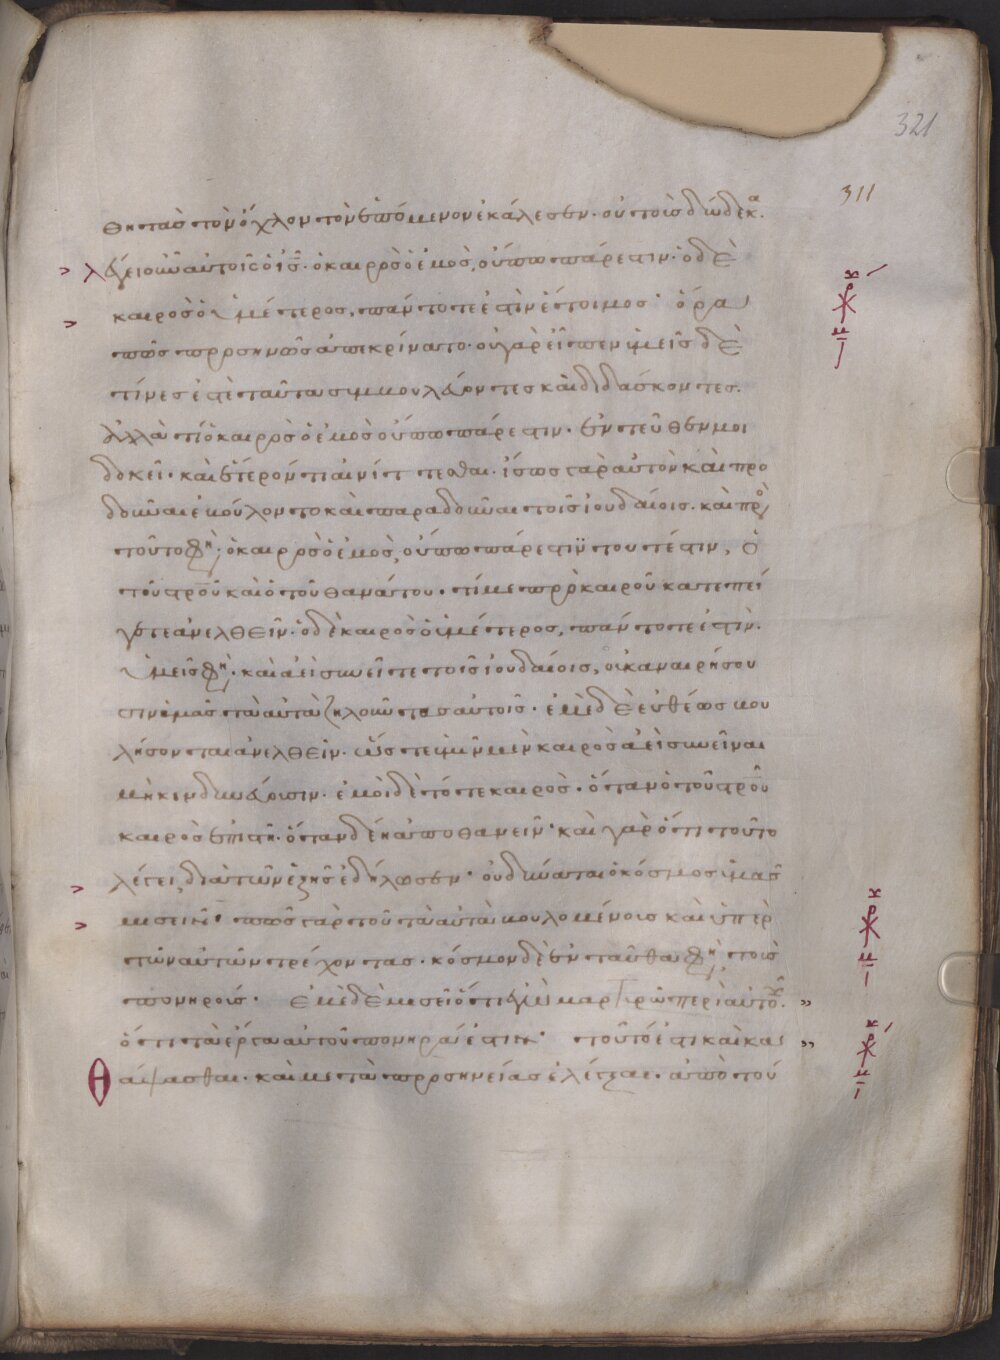 321
311
θητὰσ τὸν ὄχλον τὸν ἑπόμενον ἐκάλεσεν· οὐ τοὺσ δώδεκα.
λέγει οὖν αὐτοῖς ὁ ις̅· ὁ καιρὸσ ὁ ἐμὸσ, οὔπω πάρεστιν· ὁ δὲ
καιρὸσ ὁ ὑμέτεροσ, πάντοτε ἐστὶν ἕτοιμοσ· ὅρα
πῶσ προσηνῶσ ἀπεκρίνατο· οὐ γὰρ εἶπεν ὑμεῖσ δὲ
τίνεσ ἐστὲ ταῦτα συμβουλεύοντεσ καὶ διδάσκοντεσ.
ἀλλὰ τί ὁ καιρὸσ ὁ ἐμὸσ οὔπω πάρεστιν· ἐντεῦθέν μοι
δοκεῖ· καὶ ἕτερόν τι αἰνίττεσθαι· ἴσωσ γὰρ αὐτὸν καὶ προ
δοῦναι ἐβούλοντο καὶ παραδοῦναι τοῖσ ἰουδαίοισ. καὶ πρὸσ
τοῦτο φη· ὁ καιρὸσ ὁ ἐμὸσ, οὔπω πάρεστιν τουτέστιν, ὁ
τοῦ στροῦ καὶ ὁ τοῦ θανάτου· τί με πρὸ καιροῦ κατεπεί
γετε ἀνελθεῖν· ὁ δὲ καιρὸσ ὁ ὑμέτεροσ, πάντοτε ἐστὶν.
ὑμεῖσ φη· κἂν ἀεὶ συνεῖτε τοῖσ ἰουδαίοισ, οὐκ ἀναιρήσου
σιν ὑμᾶσ τὰ αὐτὰ ζηλοῦντασ αὐτοῖσ· ἐμὲ δὲ εὐθέωσ βου
λήσονται ἀνελθεῖν· ὥστε ὑμῖν μὲν καιρὸσ ἀεὶ συνεῖναι
μὴ κινδυνεύουσιν· ἐμοὶ δὲ τότε καιρὸσ· ὅταν ὁ τοῦ στροῦ
καιρὸσ ἐπιστῆ· ὅταν δέη ἀποθανεῖν· καὶ γὰρ ὅτι τοῦτο
λέγει, διὰ τῶν ἑξῆσ ἐδήλωσεν· οὐ δύναται ὁ κόσμοσ ὑμᾶσ
μισεῖν· πῶσ γὰρ τοὺσ τὰ αὐτὰ βουλομένουσ καὶ ὑπὲρ
τῶν αὐτῶν τρέχοντασ. κόσμον δὲ ἐνταῦθα φη τοὺσ
πονηρούσ· ἐμὲ δὲ μισεῖ ὅτι ἐγὼ μαρτυρῶ περὶ αὐτοῦ.
ὅτι τὰ ἔργα αὐτοῦ πονηρά ἐστιν· τοῦτό ἐστι καὶ κα
θάψασθαι· καὶ μετὰ προσηνείασ ἐλέγξαι. ἀπὸ τού